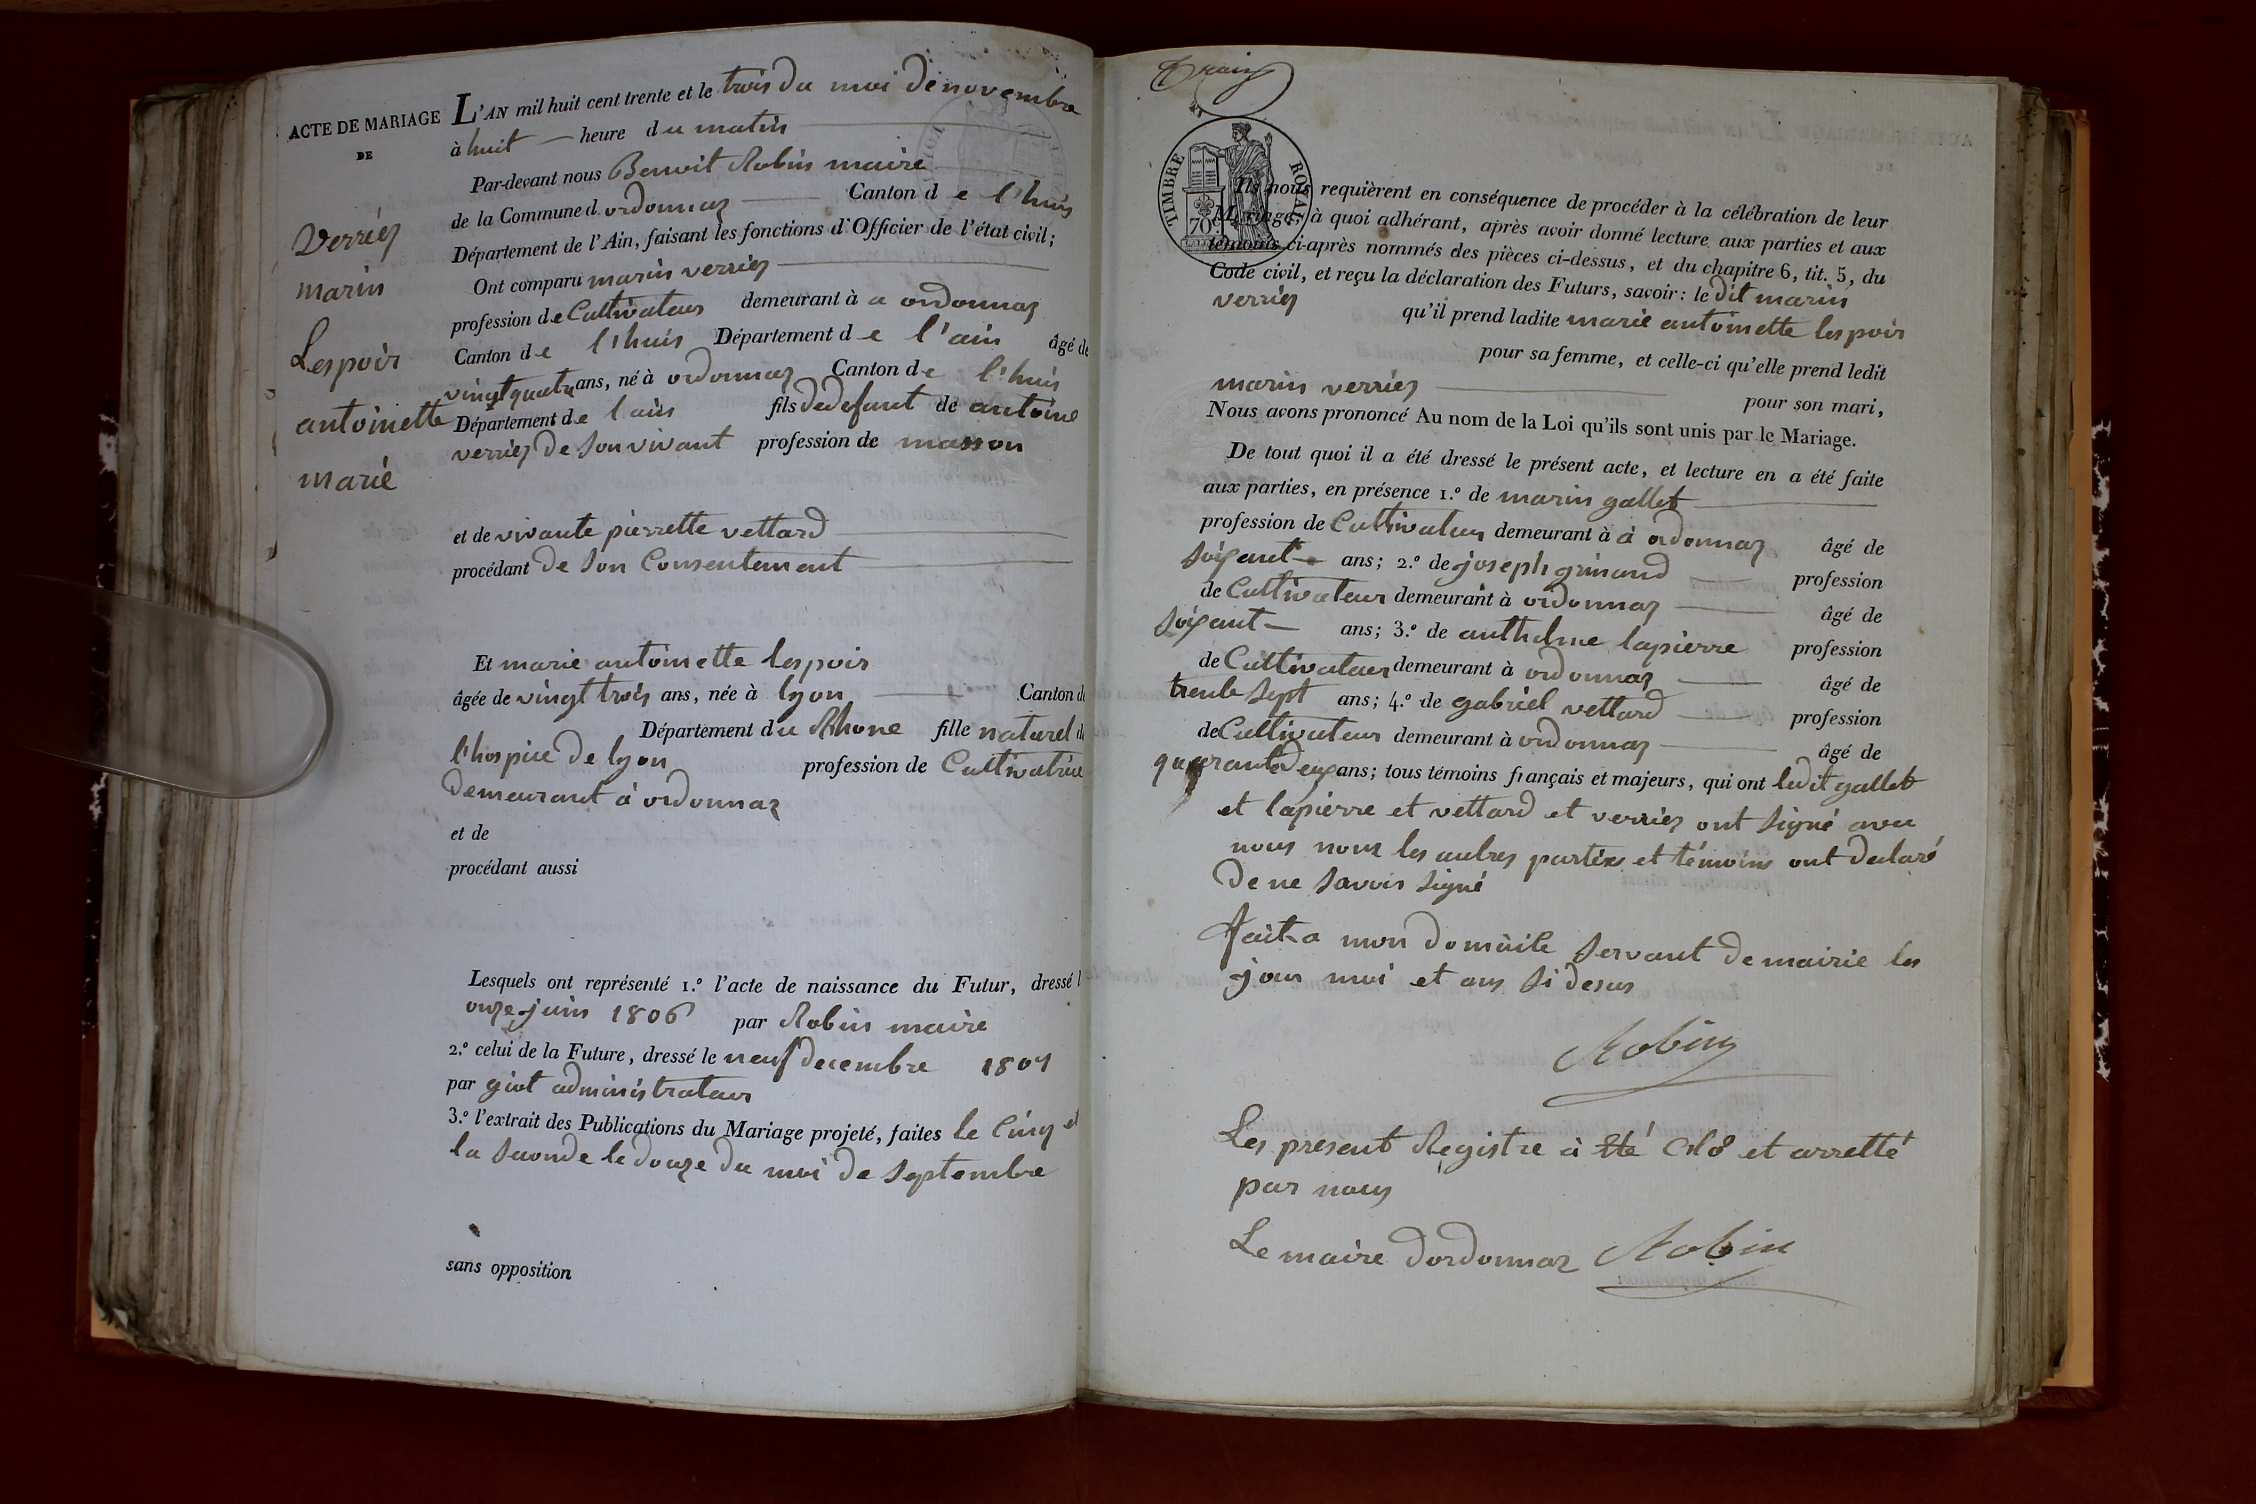 ACTE DE MARIAGE
DE
Verriez
marin
Lespoir
antoinette
marie
L'AN mil huit cent trente et le trois du moi de novembre
à huit heure du matin
Par-devant nous Benoit Robin maire
de la Commune d. ordonnaz Canton de l'huis
Département de l'Ain, faisant les fonctions d'Officier de l'état civil;
Ont comparu marin verriez
profession de Cultivateur demeurant à a ordonnaz
Canton de l'huis Département de l'ain âgé de
vingt quatre ans, né à ordonnaz Canton de l'huis
Département de l'ain fils de defunt de antoine
verriez de son vivant profession de masson
et de vivante pierrette vettard
procédant de son Consentement
Et marie antoinette lespoir
âgée de vingt trois ans, née à lyon Canton de
Département du Rhone fille naturel de
l'hospice de lyon profession de Cultivatrice
demeurant à ordonnaz
et de
procédant aussi
Lesquels ont représenté 1.º l'acte de naissance du Futur, dressé l
onze juin 1806 par Robin maire
2.º celui de la Future, dressé le neuf decembre 1807
par giot administrateur
3.º l'extrait des Publications du Mariage projeté, faites le Cinq et
la seconde le douze du moi de septembre
sans opposition
TIMBRE ROYAL
70
Ils nous requièrent en conséquence de procéder à la célébration de leur
Mariage; à quoi adhérant, après avoir donné lecture aux parties et aux
témoins ci-après nommés des pièces ci-dessus, et du chapitre 6, tit. 5, du
Code civil, et reçu la déclaration des Futurs, savoir: le dit marin
verriez qu'il prend ladite marie antoinette lespoir
pour sa femme, et celle-ci qu'elle prend ledit
marin verriez pour son mari,
Nous avons prononcé Au nom de la Loi qu'ils sont unis par le Mariage.
De tout quoi il a été dressé le présent acte, et lecture en a été faite
aux parties, en présence 1.º de marin gallet
profession de Cultivateur demeurant à à ordonnaz âgé de
soixante ans; 2.º de joseph grinand profession
de Cultivateur demeurant à ordonnaz âgé de
soixant ans; 3.º de anthelme lapierre profession
de Cultivateur demeurant à ordonnaz âgé de
trente sept ans; 4.º de gabriel vettard profession
de Cultivateur demeurant à ordonnaz âgé de
quarante deux ans; tous témoins français et majeurs, qui ont ledit gallet
et lapierre et vettard et verriez ont signé avec
nous nous les autres parties et témoins ont declaré
de ne savoir signé
fait a mon domicile servant de mairie les
jour moi et ans si desus
Robin
Les present Registre à été clos et arretté
par nous
Le maire dordonnaz Robin